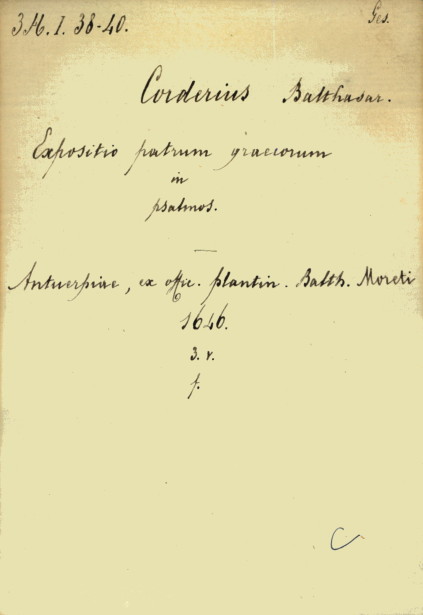 3 H. I. 38-40.
Ges.
Corderius Balthasar.
Expositio patrum graecorum
in
psalmos.
Antuerpiae, ex offic. plantin. Balth. Moreti
1646.
3. v.
f.
C